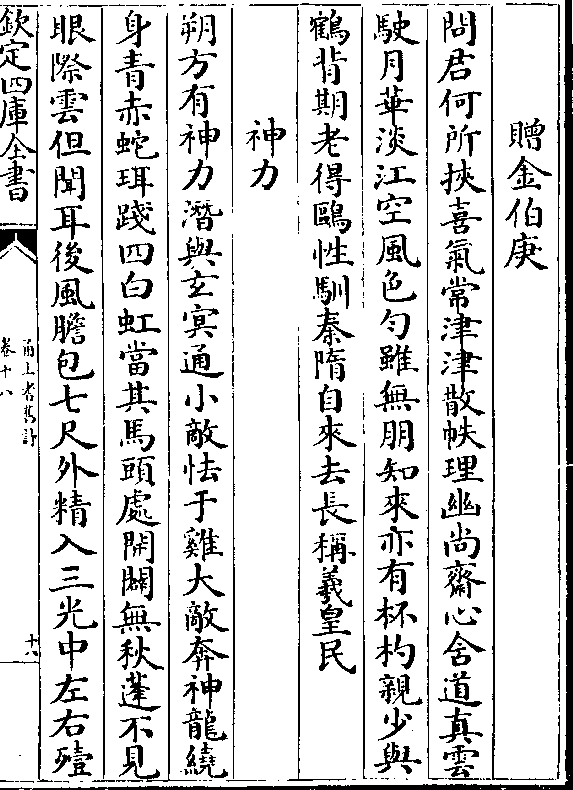 贈金伯庚
問君何所挾喜氣常津津散帙理幽尚齋心舍道真雲
駛月華淡江空風色勻雖無朋知來亦有杯杓親少與
鶴背期老得鷗性馴秦隋自來去長稱羲皇民
神力
朔方有神力潛與玄冥通小敵怯于雞大敵奔神龍繞
身青赤蛇珥踐四白虹當其馬頭處開闢無秋蓬不見
眼際雲但聞耳後風膽包七尺外精入三光中左右殪
欽定四庫全書
甬上耆舊詩
卷十八
十八